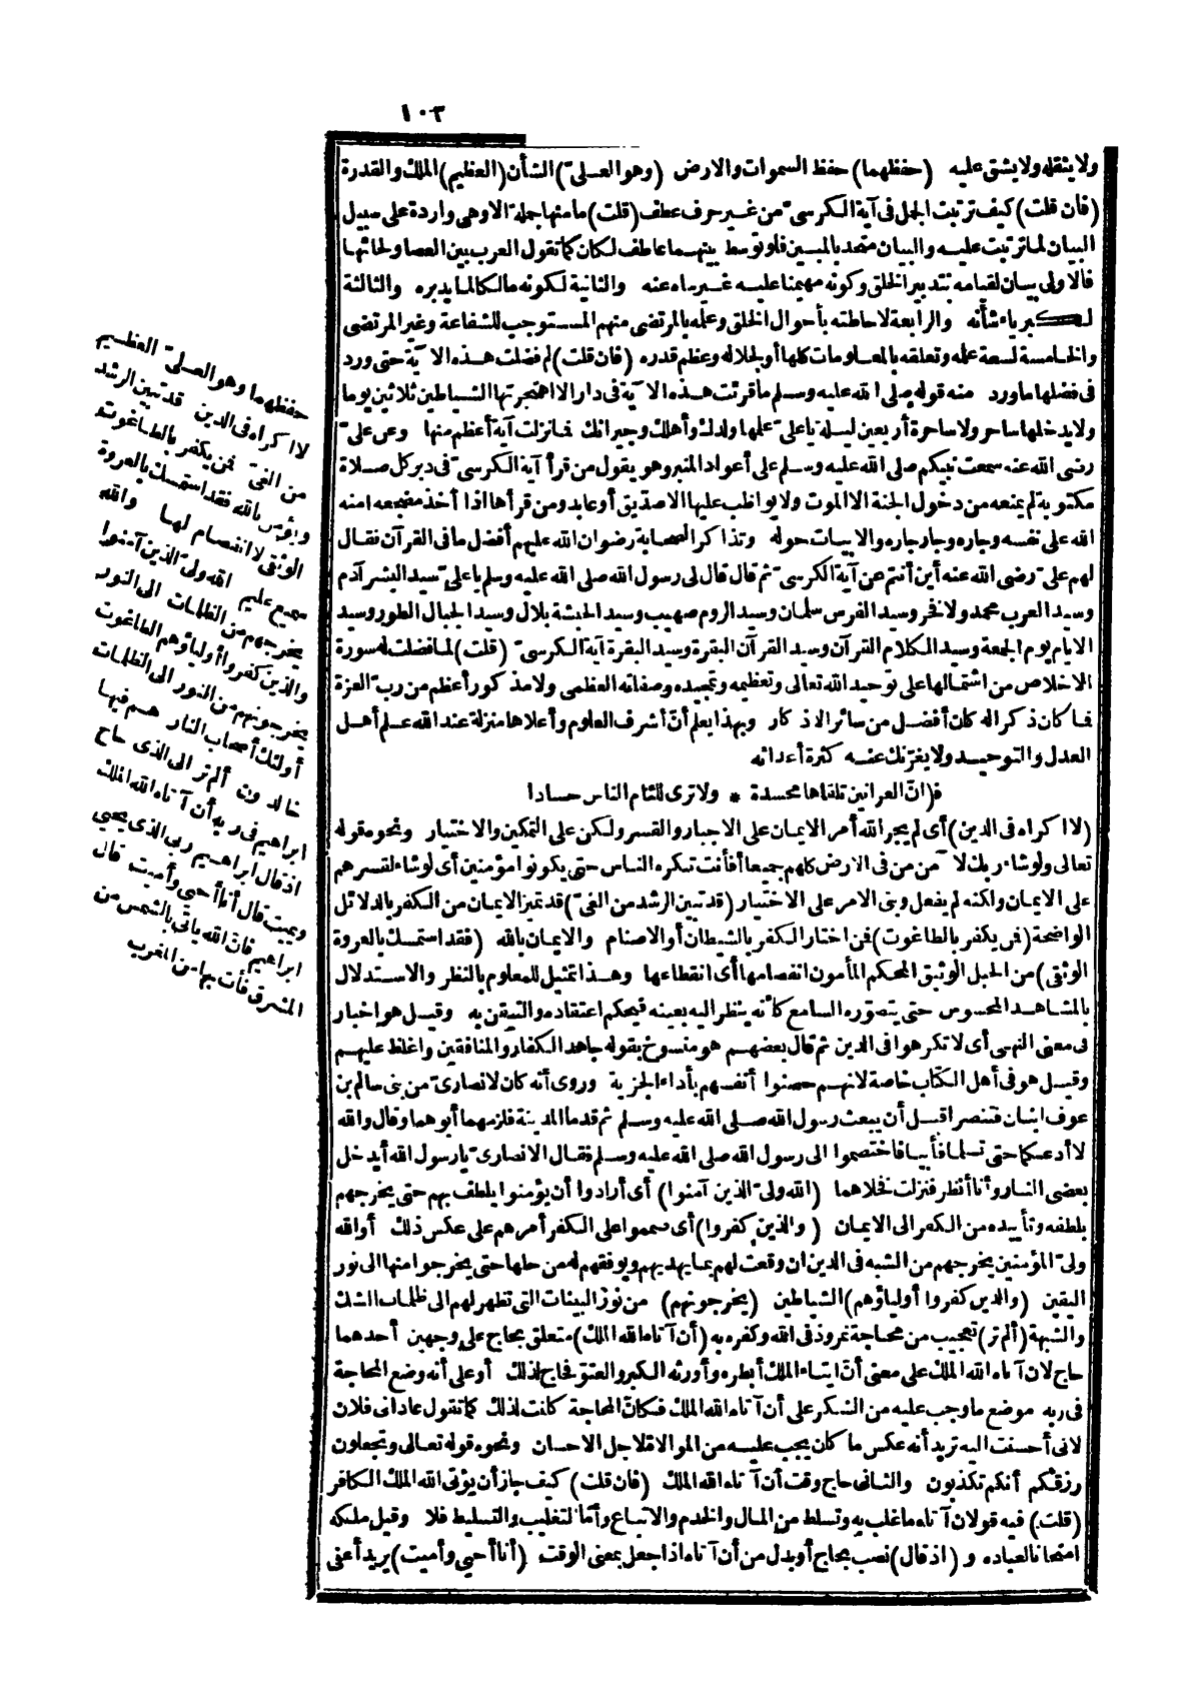 ١٠٣
ولا يثقله ولا يشق عليه (حفظهما) حفظ السموات والارض (وهو العلىّ) الشأن (العظيم) الملك والقدرة
(فان قلت) كيف ترتبت الجمل فى آية الكرسىّ من غير حرف عطف (قلت) ما منها جملة الا وهى واردة على سبيل
البيان لما ترتبت عليه والبيان متحد بالمبين فلو توسط بينهما عاطف لكان كما تقول العرب بين العصا ولحائها
فالاولى بيان لقيامه بتدبير الخلق وكونه مهيمنا عليه غير ساه عنه والثانية لكونه مالكا لما يدبره والثالثة
لكبرياء شأنه والرابعة لاحاطته بأحوال الخلق وعلمه بالمرتضى منهم المستوجب للشفاعة وغير المرتضى
والخامسة لسعة علمه وتعلقه بالمعلومات كلها أو لجلاله وعظم قدره (فان قلت) لم فضلت هذه الآية حتى ورد
فى فضلها ما ورد منه قوله صلى الله عليه وسلم ما قرئت هذه الآية فى دار الا اهتجرتها الشياطين ثلاثين يوما
ولا يدخلها ساحر ولا ساحرة أربعين ليلة يا علىّ علمها ولدك وأهلك وجيرانك فما نزلت آية أعظم منها وعن علىّ
رضى الله عنه سمعت نبيكم صلى الله عليه وسلم على أعواد المنبر وهو يقول من قرأ آية الكرسىّ فى دبر كل صلاة
مكتوبة لم يمنعه من دخول الجنة الا الموت ولا يواظب عليها الا صديق أو عابد ومن قرأها اذا أخذ مضجعه امنه
الله على نفسه وجاره وجار جاره والابيات حوله وتذاكر الصحابة رضوان الله عليهم أفضل ما فى القرآن فقال
لهم علىّ رضى الله عنه أين أنتم عن آية الكرسىّ ثم قال قال لى رسول الله صلى الله عليه وسلم يا علىّ سيد البشر آدم
وسيد العرب محمد ولا فخر وسيد الفرس سلمان وسيد الروم صهيب وسيد الحبشة بلال وسيد الجبال الطور وسيد
الايام يوم الجمعة وسيد الكلام القرآن وسيد القرآن البقرة وسيد البقرة آية الكرسىّ (قلت) لما فضلت له سورة
الاخلاص من اشتمالها على توحيد الله تعالى وتعظيمه وتمجيده وصفاته العظمى ولا مذكور أعظم من ربّ العزة
فما كان ذكرا له كان أفضل من سائر الاذكار وبهذا يعلم أنّ أشرف العلوم وأعلاها منزلة عند الله علم أهل
العدل والتوحيد ولا يغرّنك عنه كثرة أعدائه
فانّ العرانين تلقاها محسدة * ولا ترى للئام الناس حسادا
(لا اكراه فى الدين) أى لم يجر الله أمر الايمان على الاجبار والقسر ولكن على التمكين والاختيار ونحوه قوله
تعالى ولو شاء ربك لآمن من فى الارض كلهم جميعا أفأنت تكره الناس حتى يكونوا مؤمنين أى لو شاء لقسرهم
على الايمان ولكنه لم يفعل وبنى الامر على الاختيار (قد تبين الرشد من الغىّ) قد تميز الايمان من الكفر بالدلائل
الواضحة (فمن يكفر بالطاغوت) فمن اختار الكفر بالشيطان أو الاصنام والايمان بالله (فقد استمسك بالعروة
الوثقى) من الحبل الوثيق المحكم المأمون انفصامها أى انقطاعها وهذا تمثيل للمعلوم بالنظر والاستدلال
بالمشاهد المحسوس حتى يتصوّره السامع كأنه ينظر اليه بعينه فيحكم اعتقاده والتيقن به وقيل هو اخبار
فى معنى النهى أى لا تكرهوا فى الدين ثم قال بعضهم هو منسوخ بقوله جاهد الكفار والمنافقين واغلظ عليهم
وقيل هو فى أهل الكتاب خاصة لانهم حصنوا أنفسهم بأداء الجزية وروى أنه كان لانصارىّ من بنى سالم بن
عوف ابنان فتنصرا قبل أن يبعث رسول الله صلى الله عليه وسلم ثم قدما المدينة فلزمهما أبوهما وقال والله
لا أدعكما حتى تسلما فأبيا فاختصموا الى رسول الله صلى الله عليه وسلم فقال الانصارىّ يا رسول الله أيدخل
بعضى النار وأنا أنظر فنزلت فخلاهما (الله ولىّ الذين آمنوا) أى أرادوا أن يؤمنوا يلطف بهم حتى يخرجهم
بلطفه وتأييده من الكفر الى الايمان (والذين كفروا) أى صمموا على الكفر أمرهم على عكس ذلك أو الله
ولىّ المؤمنين يخرجهم من الشبه فى الدين ان وقعت لهم بما يهديهم ويوفقهم له من حلها حتى يخرجوا منها الى نور
اليقين (والذين كفروا أولياؤهم) الشياطين (يخرجونهم) من نور البينات التى تظهر لهم الى ظلمات الشك
والشبهة (ألم تر) تعجيب من محاجة نمروذ فى الله وكفره به (أن آتاه الله الملك) متعلق بحاج على وجهين أحدهما
حاج لان آتاه الله الملك على معنى أنّ ايتاء الملك أبطره وأورثه الكبر والعتوّ فحاج لذلك أو على أنه وضع المحاجة
فى ربه موضع ما وجب عليه من الشكر على أن آتاه الله الملك فكأنّ المحاجة كانت لذلك كما تقول عادانى فلان
لانى أحسنت اليه تريد أنه عكس ما كان يجب عليه من الموالاة لاجل الاحسان ونحوه قوله تعالى وتجعلون
رزقكم أنكم تكذبون والثانى حاج وقت أن آتاه الله الملك (فان قلت) كيف جاز أن يؤتى الله الملك الكافر
(قلت) فيه قولان آتاه ما غلب به وتسلط من المال والخدم والاتباع وأمّا التغليب والتسليط فلا وقيل ملكه
امتحانا لعباده و (اذ قال) نصب بحاج أو بدل من أن آتاه اذا جعل بمعنى الوقت (أنا أحيى وأميت) يريد أعفى
حفظهما وهو العلىّ العظيم
لا اكراه فى الدين قد تبين الرشد
من الغىّ فمن يكفر بالطاغوت
ويؤمن بالله فقد استمسك بالعروة
الوثقى لا انفصام لها والله
سميع عليم الله ولىّ الذين آمنوا
يخرجهم من الظلمات الى النور
والذين كفروا أولياؤهم الطاغوت
يخرجونهم من النور الى الظلمات
أولئك أصحاب النار هم فيها
خالدون ألم تر الى الذى حاج
ابراهيم فى ربه أن آتاه الله الملك
اذ قال ابراهيم ربى الذى يحيى
ويميت قال أنا أحيى وأميت قال
ابراهيم فانّ الله يأتى بالشمس من
المشرق فأت بها من المغرب